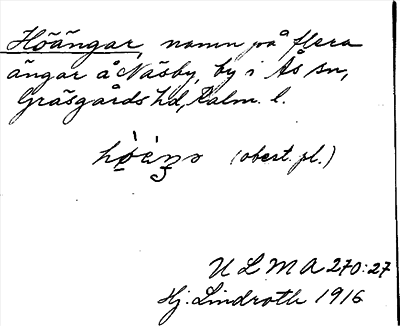 Höängar, namn på flera
ängar å Näsby, by i Ås sn,
Gräsgårds hd, Kalm. l.
(obest. pl.)
ULMA 270:27
Hj. Lindroth 1916